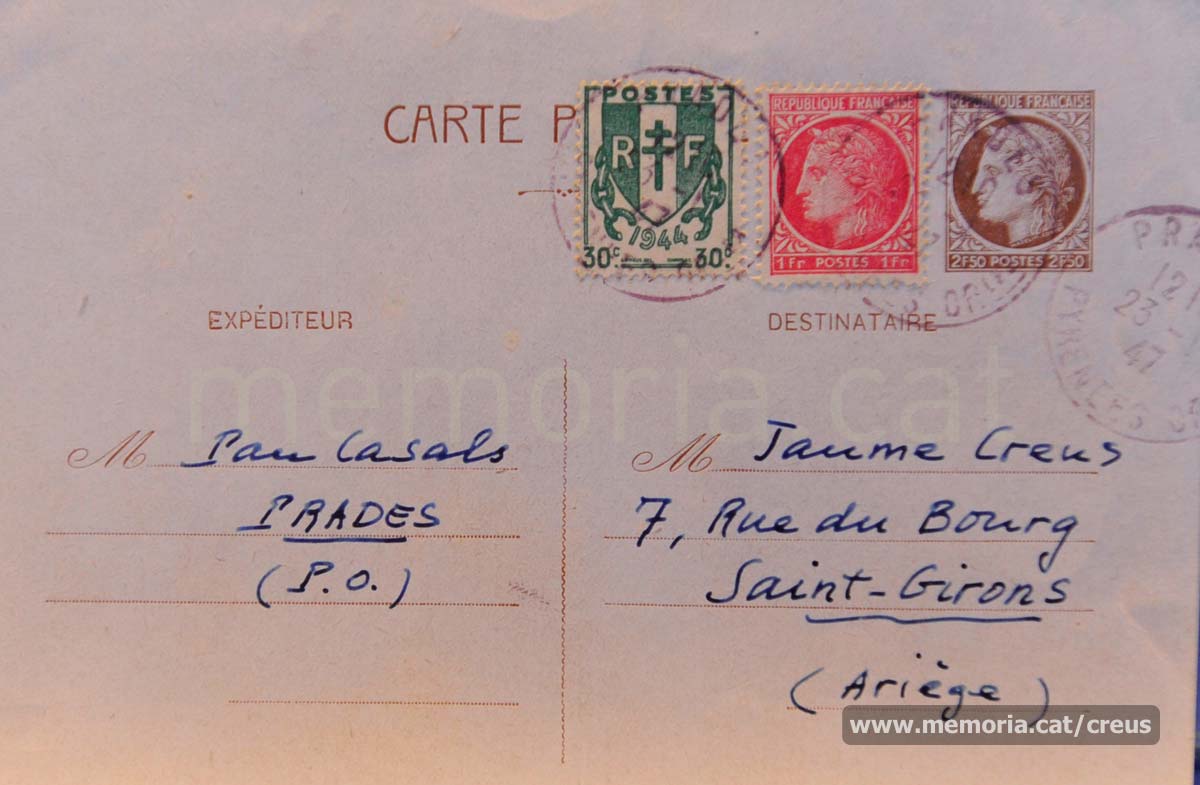 CARTE P
POSTES
R F
1944
30c 30c
REPUBLIQUE FRANÇAISE
1 Fr POSTES 1 Fr
REPUBLIQUE FRANÇAISE
2F50 POSTES 2F50
PRA
12
23
47
PYRENEES OR
EXPÉDITEUR
M Pau Casals
PRADES
(P.O.)
DESTINATAIRE
M Jaume Creus
7, Rue du Bourg
Saint-Girons
(Ariège)
memoria.cat
www.memoria.cat/creus